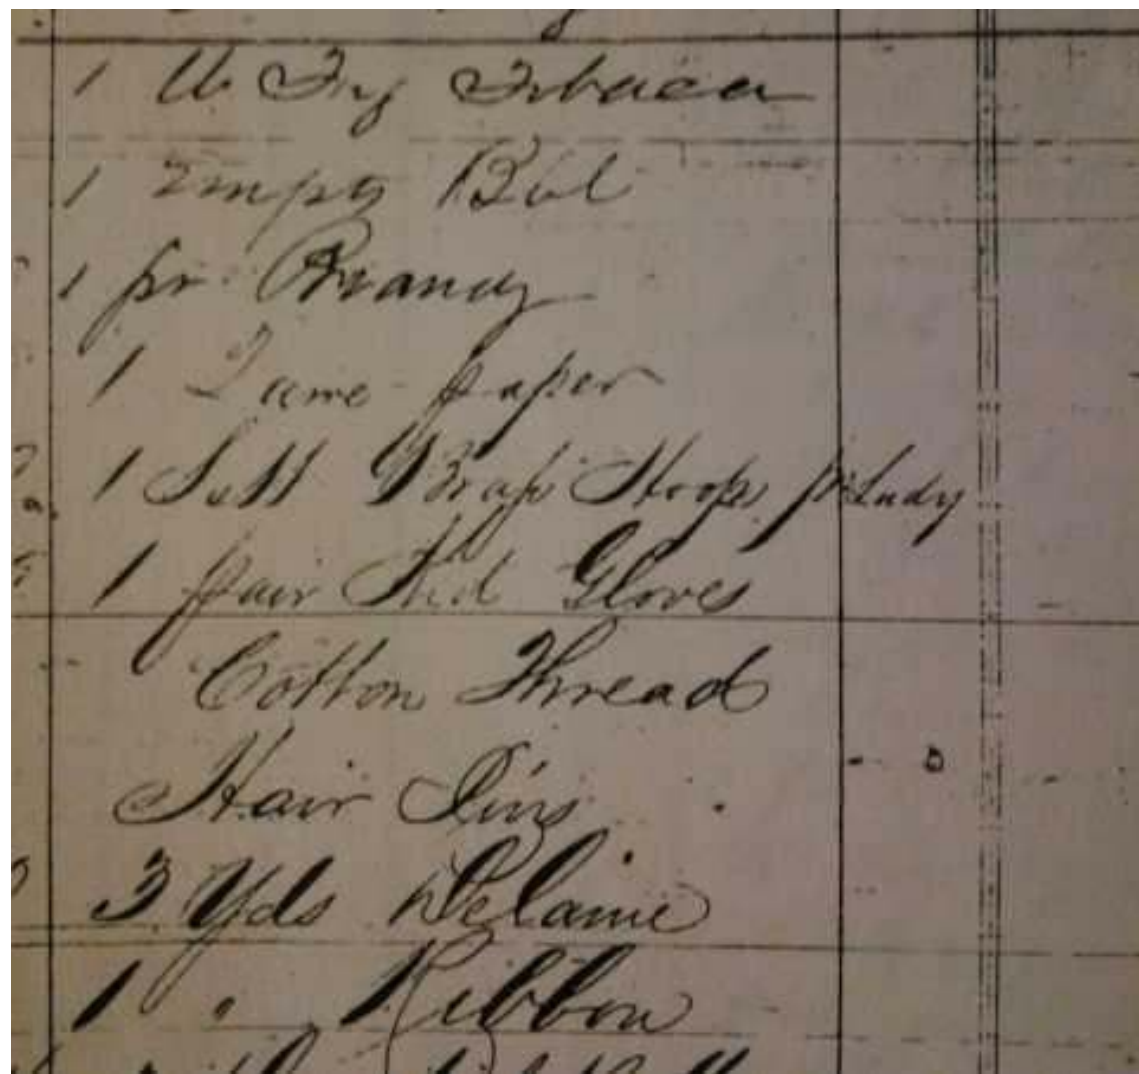 1 lb Fig Tobacco
1 Empty Bbl
1 pr. Brandy
1 paper
1 Sett Brass Hoops pr Lady
1 pair Kid Gloves
Cotton Thread
Hair Pins
3 Yds Delaine
1 " Ribbon